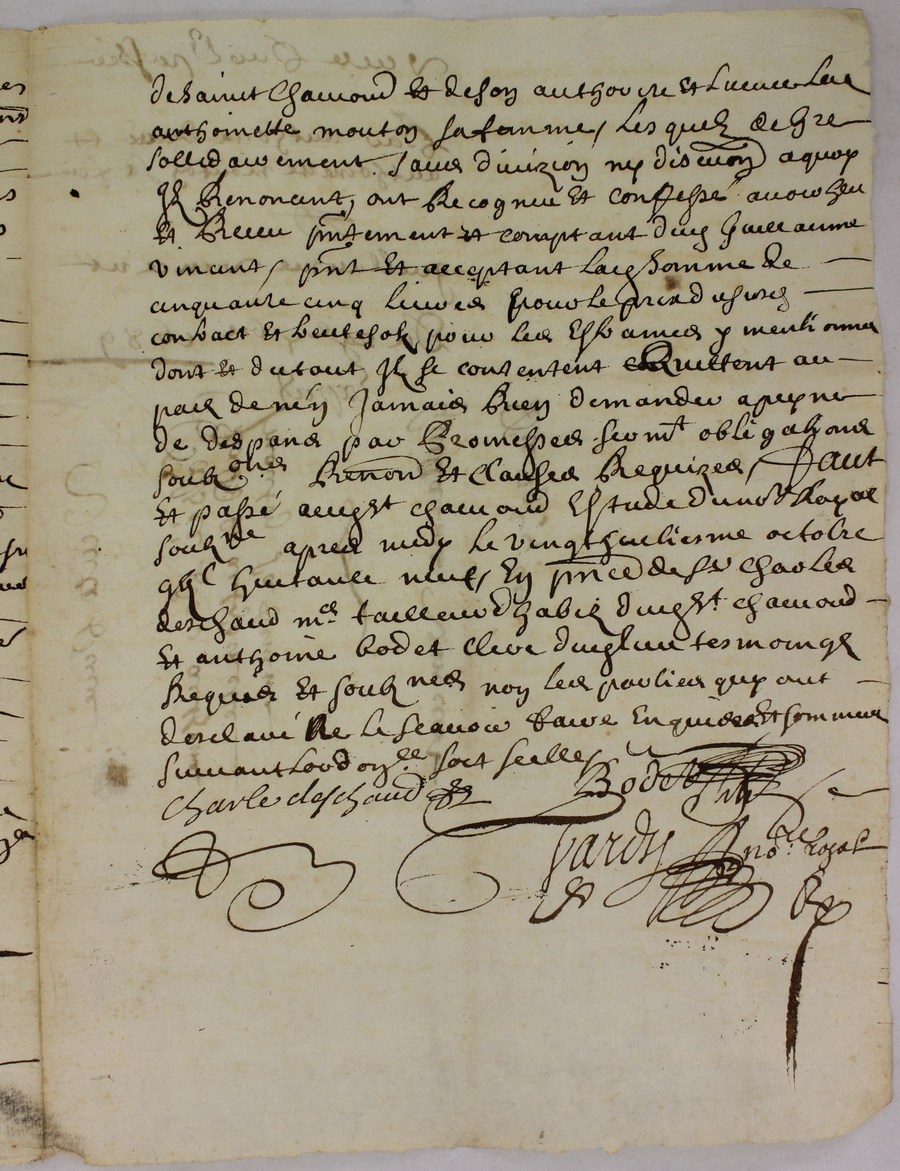 de Sainct Chamond et de son authorité et licence
anthoinette mouton sa femme, lesquelz de gre
sollidairement sans division ny discution a quoy
Ilz Renoncent, ont Recogneu et confessé avoir heu
et Receu pntement et comptant dud guillaume
vincent, pnt et acceptant lad somme de
cinquante cinq livres pour le prix du susd
contract et pour les y mentionnes
dont et du tout Ilz se contentent et Quittent au
pact de n'en Jamais Rien demander a peyne
de despans par Promesses sermt obligations
soubons Renon et Clauses Requizes, faict
et passé aud St chamond Estude du nore Royal
soubne apres midy le vingthuictiesme octobre
huitante neuf, En pnce de Sr Charles
deschaud me tailleur d'habitz dud St chamond
et anthoine bodet clerc dud lieu tesmoings
Requis et soubnes non les parties quy ont
desclairé ne le scavoir faire Enquis et sommes
suivant l'ordonce soit scelle
Charle deschaud
Bodet
Tardy nore Royal